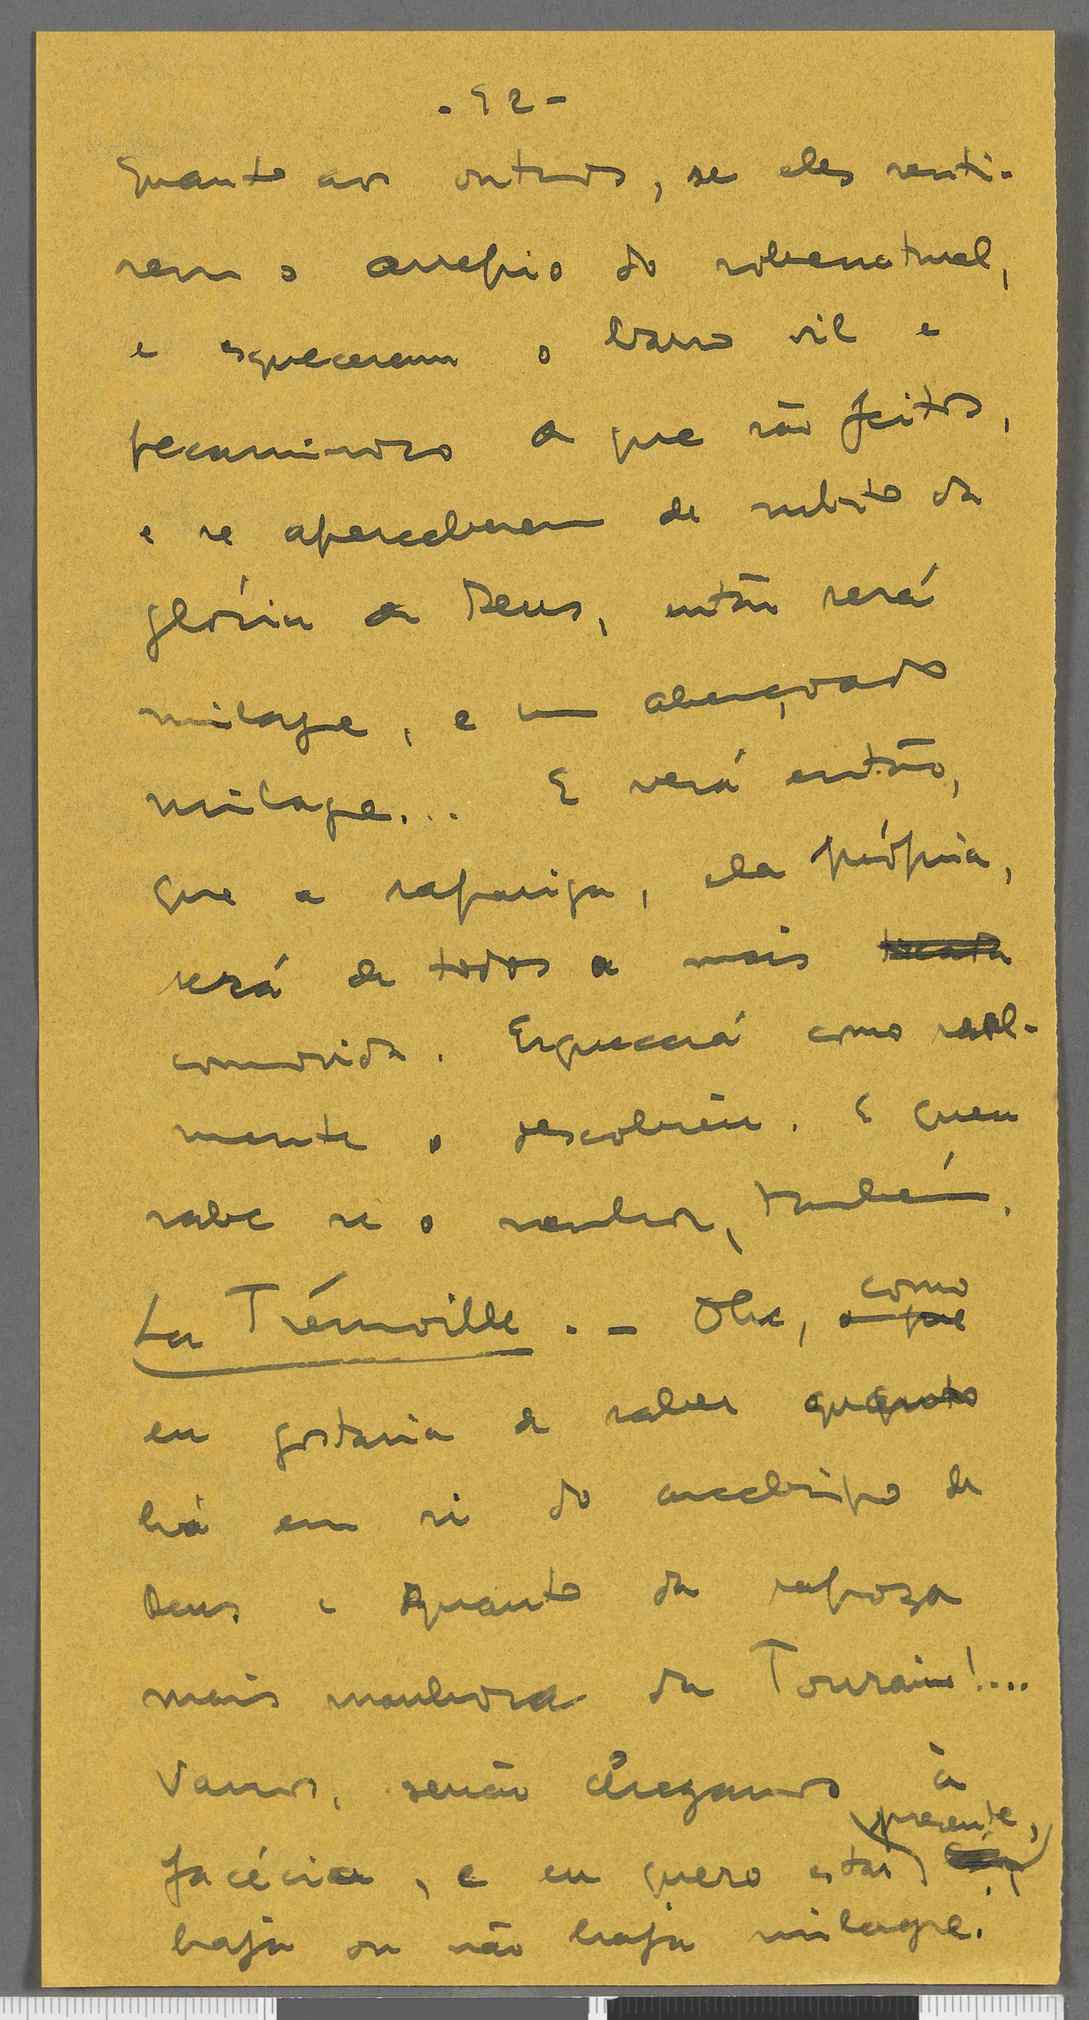 - 92 -
Quanto aos outros, se eles senti-
rem o arrepio do sobrenatural,
e esquecerem o barro vil e
pecaminoso de que são feitos,
e se aperceberem de súbito da
glória de Deus, então será
milagre, e um abençoado
milagre... E verá então,
que a rapariga, ela própria,
será de todos a mais
comovida. Esquecerá como real-
mente o descobriu. E quem
sabe se o senhor, também.
La Trémoille. - Olhe, o que como
eu gostaria de saber quanto
há em si do arcebispo de
Deus e quanto da raposa
mais manhosa da Touraine!...
Vamos, senão chegamos à
facécia, e eu quero estar presente,
haja ou não haja milagre.